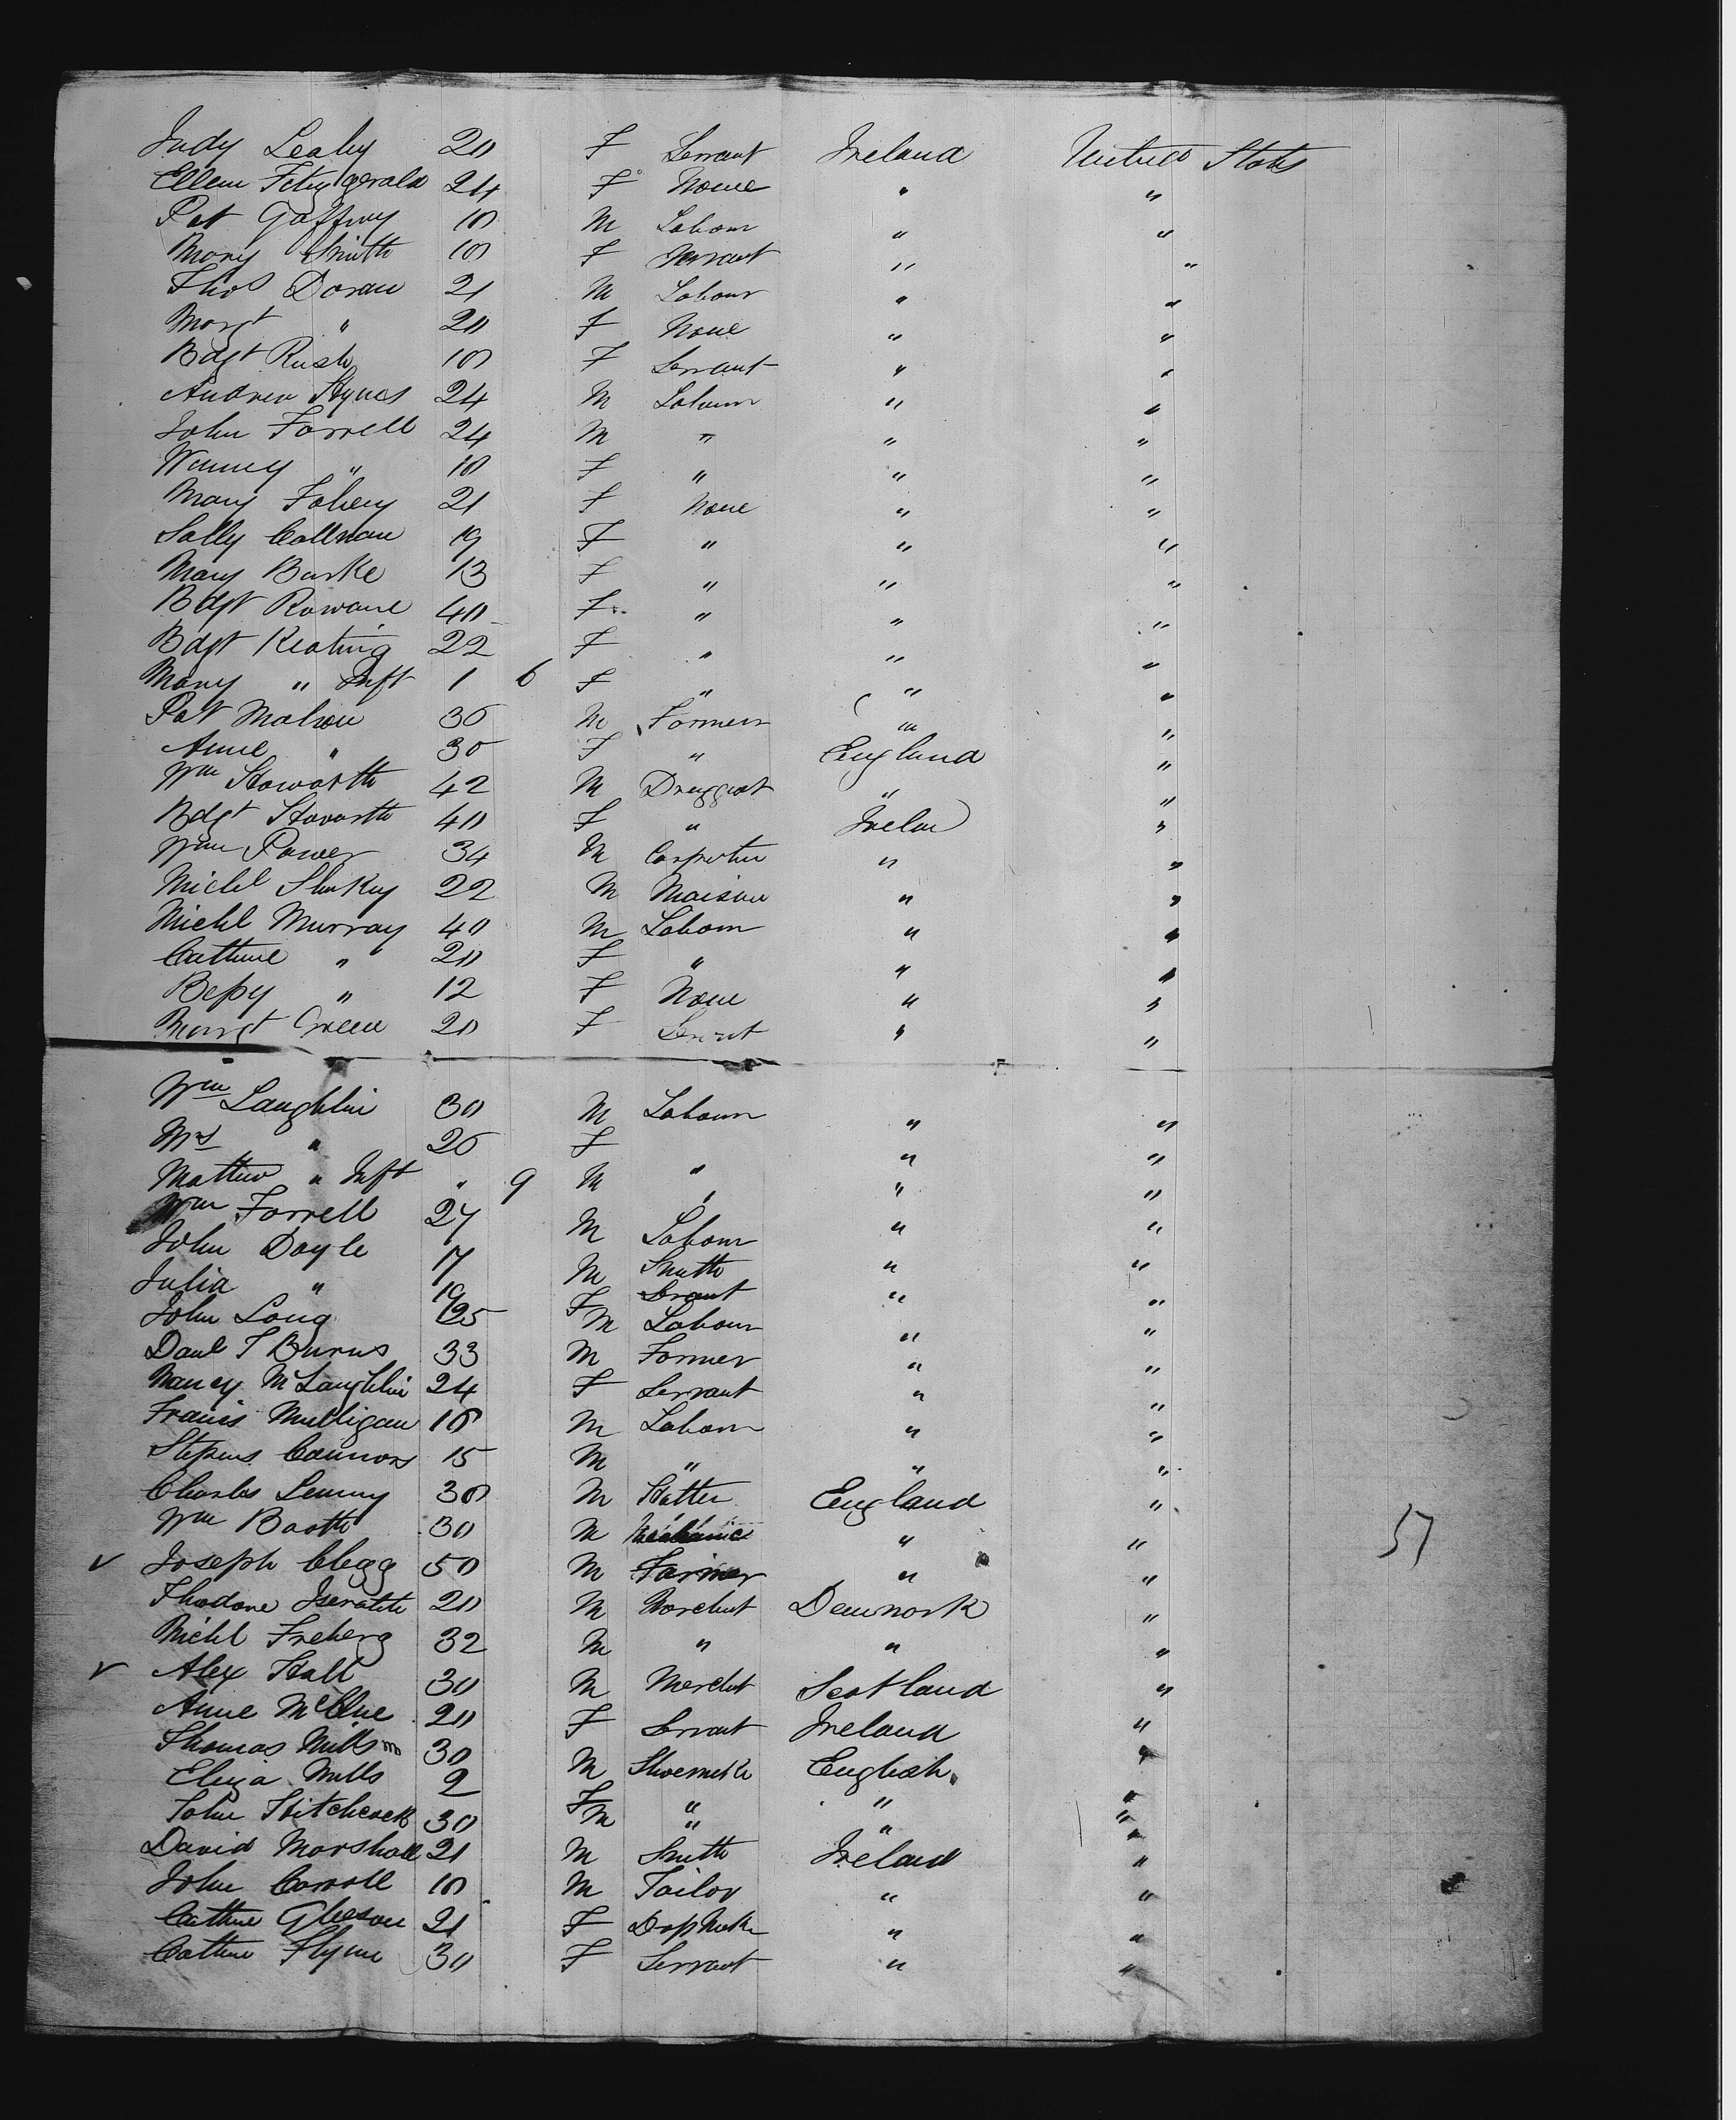 Judy Leahy 20 F Servant Ireland United States
Ellen Fitzgerald 24 F None " "
Pat Gaffney 18 M Labour " "
Mary Smith 18 F Servant " "
Thos Doran 21 M Labour " "
Margt " 20 F None " "
Bdgt Rush 18 F Servant " "
Andrew Hynes 24 M Labour " "
John Farrell 24 M " " "
Nancy " 18 F " " "
Mary Fahey 21 F None " "
Sally Callnan 19 F " " "
Mary Burke 13 F " " "
Bdgt Rowane 40 F " " "
Bdgt Keating 22 F " " "
Mary " Inft 1 6 F " " "
Pat Mahon 36 M Farmer " "
Anne " 30 F " England "
Wm Howarth 42 M Druggist " "
Bdgt Howarth 40 F " Irelan "
Wm Power 34 M Carpenter " "
Michl 22 M Maison " "
Michl Murray 40 M Labour " "
Cathrine " 20 F " " "
Bessy " 12 F None " "
Margt Green 20 F Servnt " "
Wm Laughlin 30 M Labour " "
Mrs " 26 F " "
Mathew " Inft " 9 M " " "
Wm Farrell 27 M Labour " "
John Doyle 17 M Smith " "
Julia " 19 F Servant " "
John Long 25 M Labour " "
Danl T Burns 33 M Farmer " "
Nancy McLaughlin 24 F Servant " "
Francis Mulligan 18 M Labour " "
Stephens Connors 15 M " " "
Charles Lenny 30 M Hatter England "
Wm Booth 30 M Mechanic " "
✓ Joseph Clegg 50 M Farmer " "
Thodore 20 M Merchnt Denmark "
Michl Freberg 32 M " " "
✓ Alex Hall 30 M Merchnt Scotland "
Anne McClue 20 F Servant Ireland "
Thomas Mills 30 M Shoemaker English "
Eliza Mills 2 F " " "
John Hitchcock 30 M " " "
David Marshall 21 M Smith Ireland "
John Carroll 18 M Tailor " "
Cathrine Gleeson 21 F Dressmaker " "
Cathrine Flynn 30 F Servant " "
57